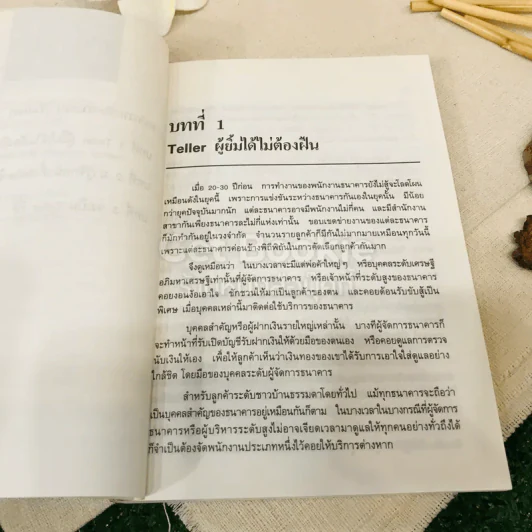 บทที่ 1
Teller ผู้ยิ้มได้ไม่ต้องฝืน
เมื่อ 20-30 ปีก่อน การทำงานของพนักงานธนาคารยังไม่สู้จะโลดโผน
เหมือนดังในยุคนี้ เพราะการแข่งขันระหว่างธนาคารกันเองในยุคนั้น มีน้อย
กว่ายุคปัจจุบันมากนัก แต่ละธนาคารอาจมีพนักงานไม่กี่คน และมีสำนักงาน
สาขากันเพียงธนาคารละไม่กี่แห่งเท่านั้น ขอบเขตข่ายงานของแต่ละธนาคาร
ก็มักทำกันอยู่ในวงจำกัด จำนวนรายลูกค้าก็มีกันไม่มากมายเหมือนทุกวันนี้
เพราะแต่ละธนาคารค่อนข้างพิถีพิถันในการคัดเลือกลูกค้ากันมาก
จึงดูเหมือนว่า ในบางเวลาจะมีแต่พ่อค้าใหญ่ ๆ หรือบุคคลระดับเศรษฐี
อภิมหาเศรษฐีเท่านั้นที่ผู้จัดการธนาคาร หรือเจ้าหน้าที่ระดับสูงของธนาคาร
คอยงอนง้อเอาใจ ชักชวนให้มาเป็นลูกค้าของตน และคอยต้อนรับขับสู้เป็น
พิเศษ เมื่อบุคคลเหล่านี้มาติดต่อใช้บริการของธนาคาร
บุคคลสำคัญหรือผู้ฝากเงินรายใหญ่เหล่านั้น บางทีผู้จัดการธนาคารก็
จะทำหน้าที่รับเปิดบัญชีรับฝากเงินให้ด้วยมือของตนเอง หรือคอยดูแลการตรวจ
นับเงินให้เอง เพื่อให้ลูกค้าเห็นว่าเงินทองของเขาได้รับการเอาใจใส่ดูแลอย่าง
ใกล้ชิด โดยมือของบุคคลระดับผู้จัดการธนาคาร
สำหรับลูกค้าระดับชาวบ้านธรรมดาโดยทั่วไป แม้ทุกธนาคารจะถือว่า
เป็นบุคคลสำคัญของธนาคารอยู่เหมือนกันก็ตาม ในบางเวลาในบางกรณีที่ผู้จัดการ
ธนาคารหรือผู้บริหารระดับสูงไม่อาจเจียดเวลามาดูแลให้ทุกคนอย่างทั่วถึงได้
ก็จำเป็นต้องจัดพนักงานประเภทหนึ่งไว้คอยให้บริการต่างหาก